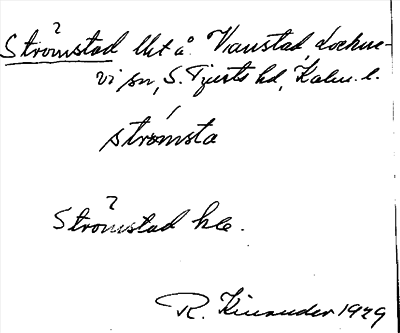 Strömstad lht å Vanstad, Locknevi sn, S. Tjusts hd, Kalm. l.
strömsta
Strömstad hle.
R. Kinander 1929